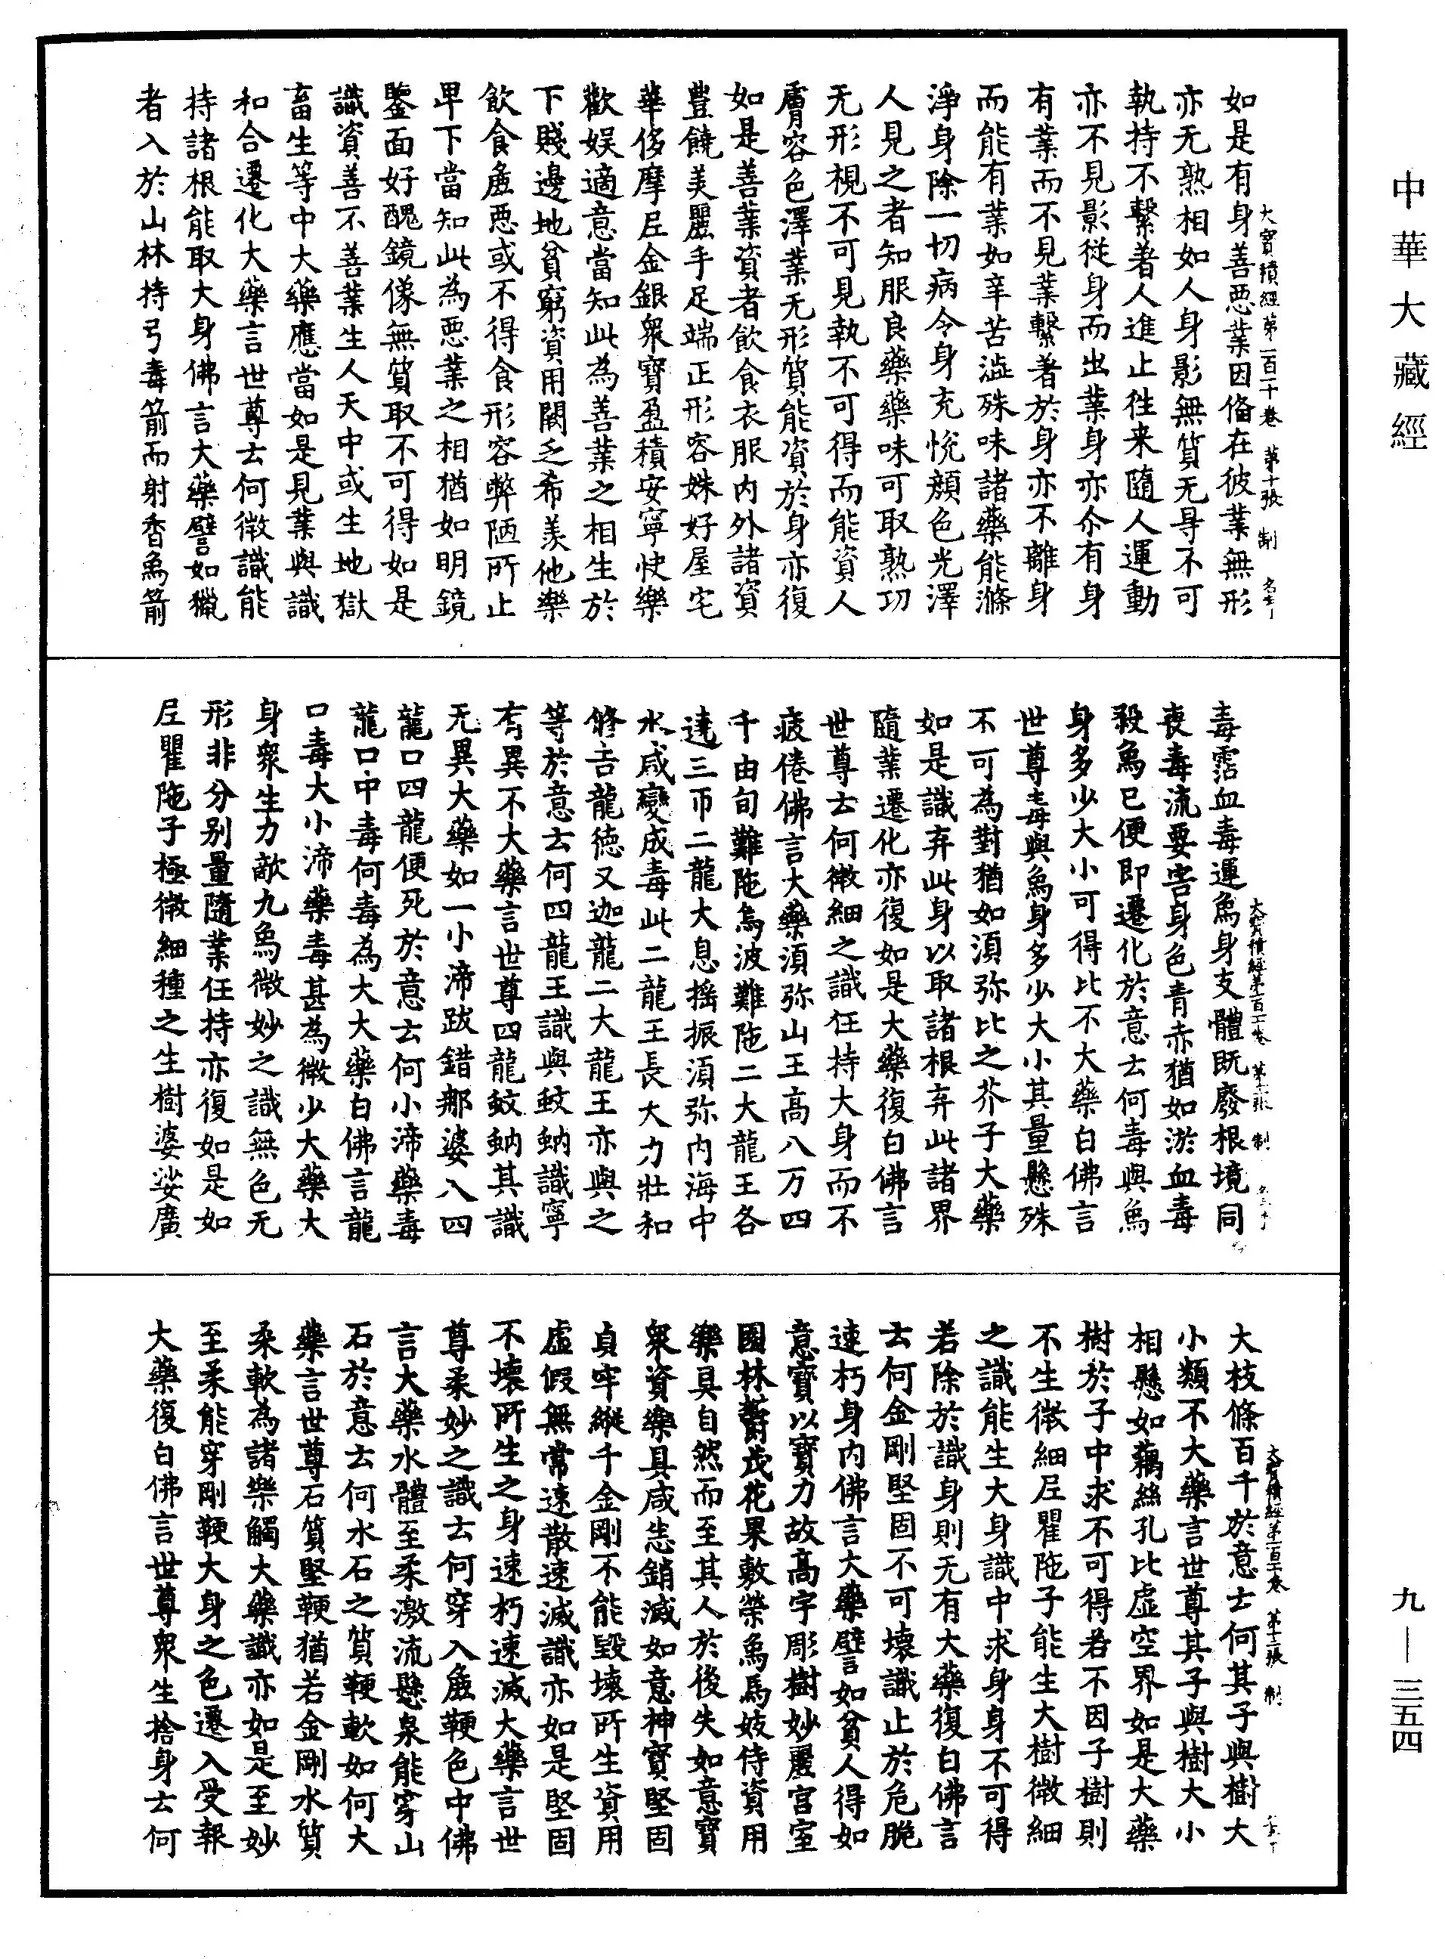 中華大藏經
如是有身善惡業因俻在彼業無形
大寶積經第一百一十卷 第十張 制
亦无熟相如人身影無質无㝵不可
執持不繫著人進止往来隨人運動
亦不見影從身而出業身亦尒有身
有業而不見業繫著於身亦不離身
而能有業如辛苦澁殊味諸藥能滌
淨身除一切病令身充悅顏色光澤
人見之者知服良藥藥味可取熟功
无形視不可見執不可得而能資人
膚容色澤業无形質能資於身亦復
如是善業資者飲食衣服內外諸資
豊饒美麗手足端正形容姝好屋宅
華侈摩尼金銀眾寶盈積安寧快樂
歡娱適意當知此為善業之相生於
下賤邊地貧窮資用闕乏希羨他樂
飲食麁惡或不得食形容弊陋所止
卑下當知此為惡業之相猶如明鏡
鑒面好醜鏡像無質取不可得如是
識資善不善業生人天中或生地獄
畜生等中大藥應當如是見業與識
和合遷化大藥言世尊云何微識能
持諸根能取大身佛言大藥譬如獵
者入於山林持弓毒箭而射香象箭
毒霑血毒運象身支體既廢根境同
大寶積經第一百一十卷 第十一張 制
喪毒流要害身色青赤猶如淤血毒
殺象已便即遷化於意云何毒與象
身多少大小可得比不大藥白佛言
世尊毒與象身多少大小其量懸殊
不可為對猶如須弥比之芥子大藥
如是識弃此身以取諸根弃此諸界
隨業遷化亦復如是大藥復白佛言
世尊云何微細之識任持大身而不
疲倦佛言大藥須弥山王高八万四
千由旬難陁烏波難陁二大龍王各
遶三帀二龍大息摇振須弥內海中
水咸變成毒此二龍王長大力壯和
修吉龍德叉迦龍二大龍王亦與之
等於意云何四龍王識與蚊蚋識寧
有異不大藥言世尊四龍蚊蚋其識
无異大藥如一小渧跋錯那婆入四
龍口四龍便死於意云何小渧藥毒
龍口中毒何毒為大大藥白佛言龍
口毒大小渧藥毒甚為微少大藥大
身眾生力敵九象微妙之識無色无
形非分別量隨業任持亦復如是如
尼瞿陁子極微細種之生樹婆娑廣
大枝條百千於意云何其子與樹大
大寶積經第一百一十卷 第十二張 制
小類不大藥言世尊其子與樹大小
相懸如藕絲孔比虛空界如是大藥
樹於子中求不可得若不因子樹則
不生微細尼瞿陁子能生大樹微細
之識能生大身識中求身身不可得
若除於識身則无有大藥復白佛言
云何金剛堅固不可壞識止於危脆
速朽身內佛言大藥譬如貧人得如
意寶以寶力故高宇彫樹妙麗宫室
園林欝茂花果敷榮象馬妓侍資用
樂具自然而至其人於後失如意寶
眾資樂具咸悉銷滅如意神寶堅固
貞牢縱千金剛不能毀壞所生資用
虛假無常速散速滅識亦如是堅固
不壞所生之身速朽速滅大藥言世
尊柔妙之識云何穿入麁鞕色中佛
言大藥水體至柔激流懸泉能穿山
石於意云何水石之質鞕軟如何大
藥言世尊石質堅鞕猶若金剛水質
柔軟為諸樂觸大藥識亦如是至妙
至柔能穿剛鞕大身之色遷入受報
大藥復白佛言世尊眾生捨身云何
九—三五四